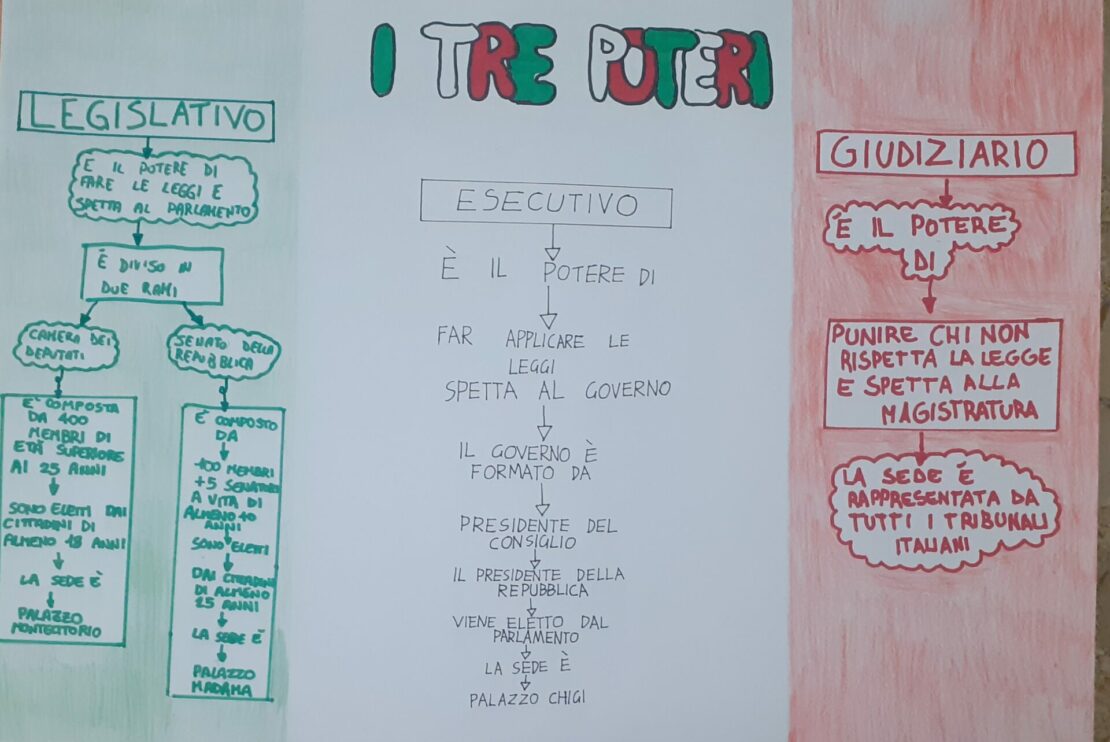 I TRE POTERI
LEGISLATIVO
E IL POTERE DI
FARE LE LEGGI E
SPETTA AL PARLAMENTO
È DIVISO IN
DUE RAMI
CAMERA DEI
DEPUTATI
E' COMPOSTA
DA 400
MEMBRI DI
ETÀ SUPERIORE
AI 25 ANNI
SONO ELETTI DAI
CITTADINI DI
ALMENO 18 ANNI
LA SEDE È
PALAZZO
MONTECITORIO
SENATO DELLA
REPUBBLICA
E' COMPOSTO
DA
MEMBRI
+5 SENATORI
A VITA DI
ALMENO 40
ANNI
SONO ELETTI
DAI CITTADINI
DI ALMENO
25 ANNI
LA SEDE È
PALAZZO
MADAMA
ESECUTIVO
È IL POTERE DI
FAR APPLICARE LE
LEGGI
SPETTA AL GOVERNO
IL GOVERNO È
FORMATO DA
PRESIDENTE DEL
CONSIGLIO
IL PRESIDENTE DELLA
REPUBBLICA
VIENE ELETTO DAL
PARLAMENTO
LA SEDE È
PALAZZO CHIGI
GIUDIZIARIO
È IL POTERE
DI
PUNIRE CHI NON
RISPETTA LA LEGGE
E SPETTA ALLA
MAGISTRATURA
LA SEDE È
RAPPRESENTATA DA
TUTTI I TRIBUNALI
ITALIANI